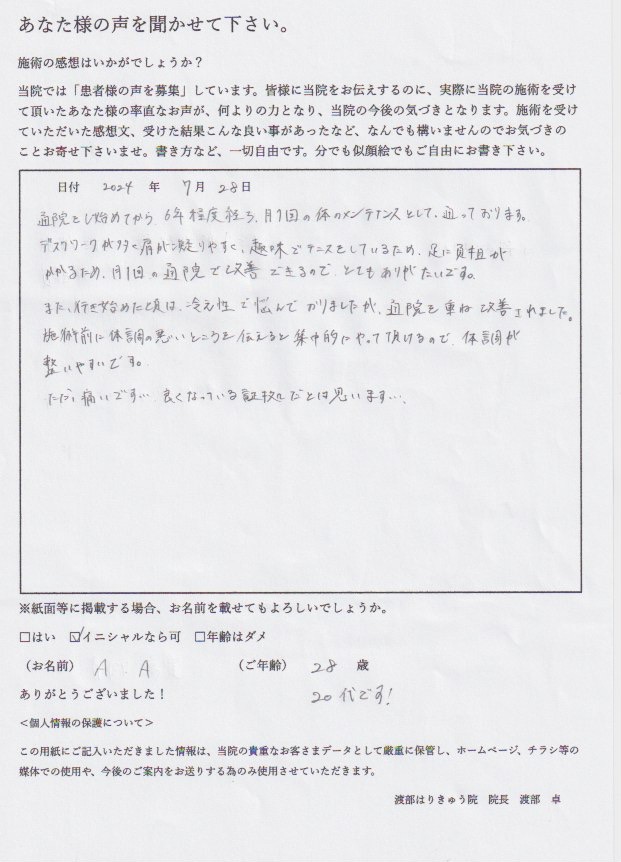 あなた様の声を聞かせて下さい。
施術の感想はいかがでしょうか？
当院では「患者様の声を募集」しています。皆様に当院をお伝えするのに、実際に当院の施術を受け
て頂いたあなた様の率直なお声が、何よりの力となり、当院の今後の気づきとなります。施術を受け
ていただいた感想文、受けた結果こんな良い事があったなど、なんでも構いませんのでお気づきの
ことお寄せ下さいませ。書き方など、一切自由です。分でも似顔絵でもご自由にお書き下さい。
日付 2024 年 7月 28日
通院をし始めてから、6年程度経ち、月1回の体のメンテナンスとして、通っております。
デスクワークが多く肩が凝りやすく、趣味でテニスをしているため、足に負担が
かかるため、月1回の通院で改善できるので、とてもありがたいです。
また、行き始めた頃は、冷え性で悩んでおりましたが、通院を重ね改善されました。
施術前に体調の悪いところを伝えると集中的にやって頂けるので、体調が
整いやすいです。
ただ、痛いです… 良くなっている証拠だとは思います…。
※紙面等に掲載する場合、お名前を載せてもよろしいでしょうか。
□はい ☑イニシャルなら可 □年齢はダメ
（お名前） A . A （ご年齢） 28 歳
ありがとうございました！ 20代です！
＜個人情報の保護について＞
この用紙にご記入いただきました情報は、当院の貴重なお客さまデータとして厳重に保管し、ホームページ、チラシ等の
媒体での使用や、今後のご案内をお送りする為のみ使用させていただきます。
渡部はりきゅう院 院長 渡部 卓